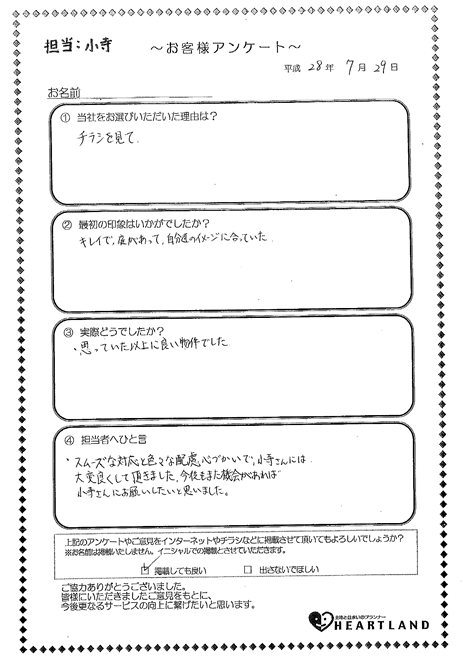 担当:小寺
～お客様アンケート～
平成 28年 7月 29日
お名前
① 当社をお選びいただいた理由は?
チラシを見て.
② 最初の印象はいかがでしたか?
キレイで,庭があって,自分達のイメージに合っていた.
③ 実際どうでしたか?
・思っていた以上に良い物件でした
④ 担当者へひと言
・スムーズな対応と色々な配慮,心づかいで,小寺さんには
大変良くして頂きました。今後もまた機会があれば
小寺さんにお願いしたいと思いました。
上記のアンケートやご意見をインターネットやチラシなどに掲載させて頂いてもよろしいでしょうか?
※お名前は掲載いたしません。イニシャルでの掲載とさせていただきます。
掲載しても良い □ 出さないでほしい
ご協力ありがとうございました。
皆様にいただきましたご意見をもとに、
今後更なるサービスの向上に繋げたいと思います。
お家と住まいのプランナー
HEARTLAND